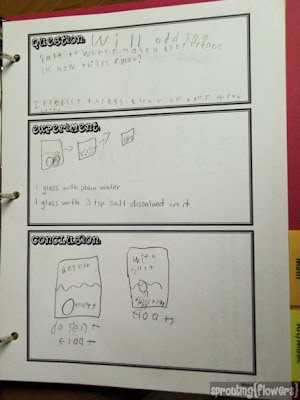 Question Will adding
salt to water make a difference
in how things float?
I predict things float in salt water
experiment
1 glass with plain water
1 glass with 3 tsp salt dissolved in it
conclusion
no salt
with
salt
doesn't
float
floats
sprouting{flowers}